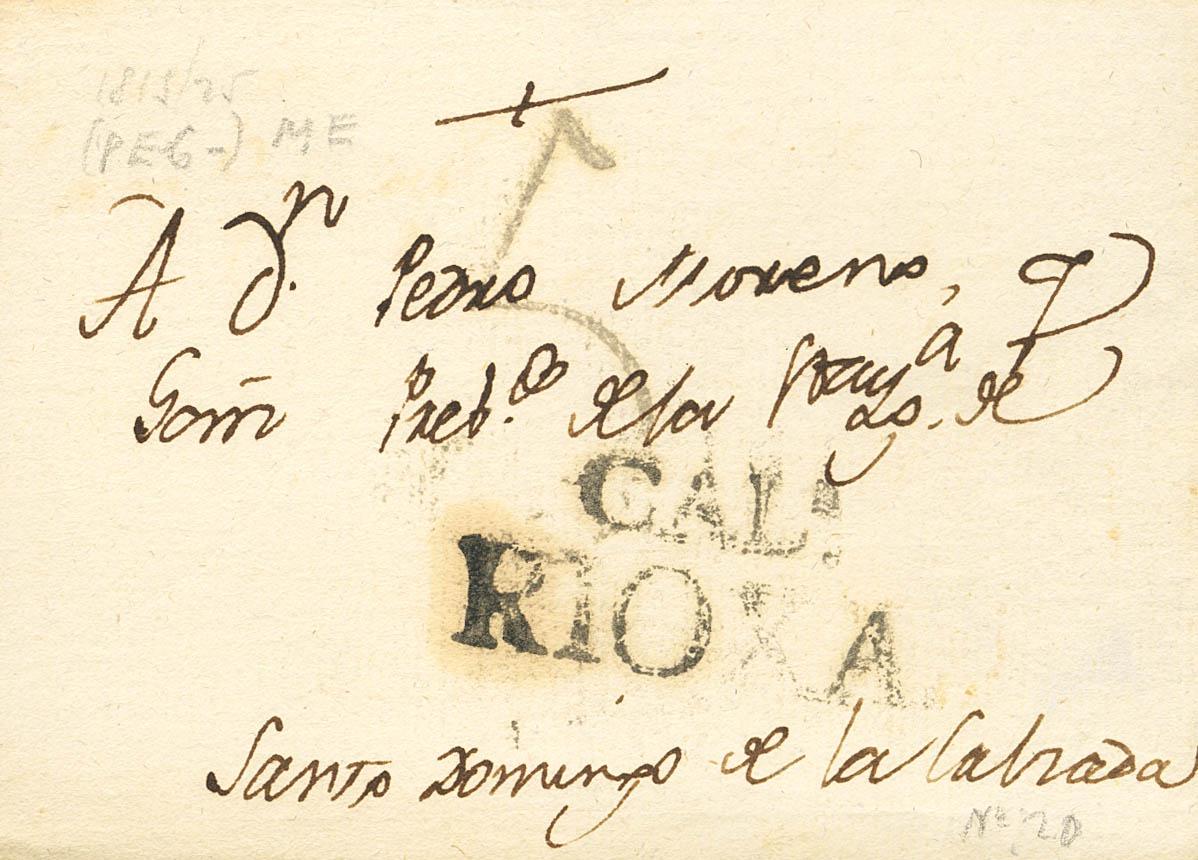 1819/25
(PE6-) ME
A Dn. Pedro Moreno, y
Goñi Preb.do de la
de
CAL.
RIOXA
Santo Domingo de la Calzada
Nº 20